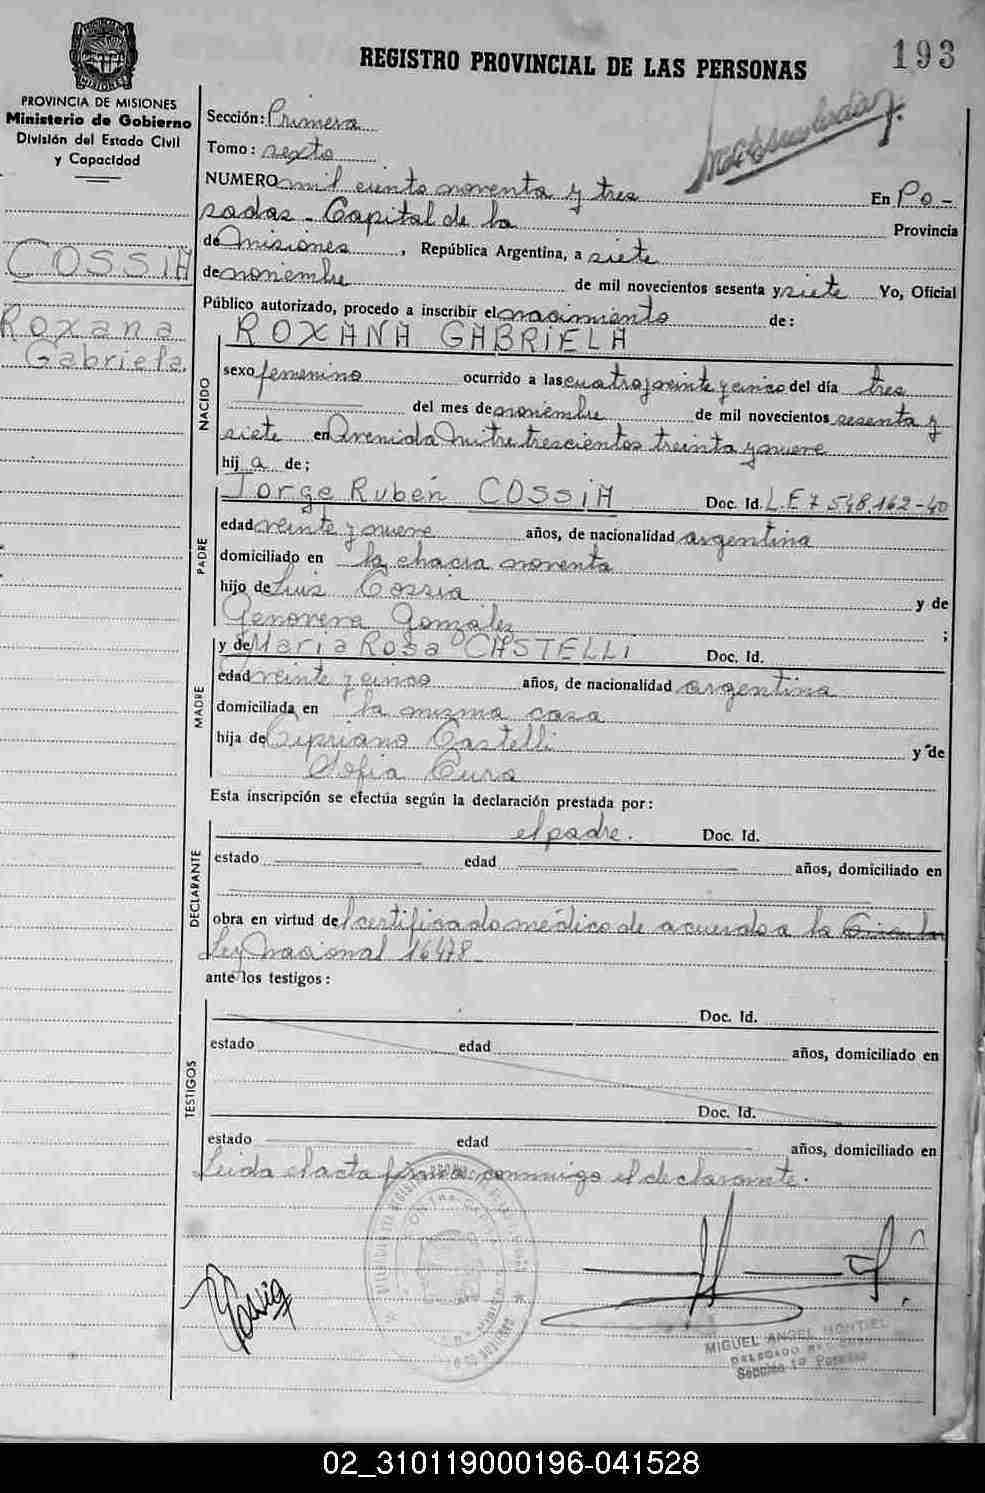 193
REGISTRO PROVINCIAL DE LAS PERSONAS
PROVINCIA DE MISIONES
Ministerio de Gobierno
División del Estado Civil
y Capacidad
COSSIA
Roxana
Gabriela.
Sección: Primera
Tomo: sexto
NUMERO mil ciento noventa y tres En Po-
sadas - Capital de la Provincia
de Misiones, República Argentina, a siete
de noviembre de mil novecientos sesenta y siete Yo, Oficial
Público autorizado, procedo a inscribir el nacimiento de:
ROXANA GABRIELA
NACIDO
sexo femenino ocurrido a las cuatro y veinte y cinco del día tres
del mes de noviembre de mil novecientos sesenta y
siete en Avenida Mitre trescientos treinta y nueve
hij a de;
PADRE
Jorge Rubén COSSIA Doc. Id. L.E 7 548.162-40
edad veinte y nueve años, de nacionalidad argentina
domiciliado en la chacra noventa
hijo de Luis Cossia y de
Genoveva Gonzáles ;
MADRE
y de María Rosa CASTELLI Doc. Id.
edad veinte y cinco años, de nacionalidad argentina
domiciliada en la misma casa
hija de Cipriano Castelli y de
Sofia Cura
Esta inscripción se efectúa según la declaración prestada por:
DECLARANTE
el padre. Doc. Id.
estado edad años, domiciliado en
obra en virtud del certificado médico de acuerdo a la
Ley Nacional 16478
ante los testigos:
TESTIGOS
Doc. Id.
estado edad años, domiciliado en
Doc. Id.
estado edad años, domiciliado en
Leida el acta firma conmigo el declarante.
MIGUEL ANGEL MONTIEL
02_310119000196-041528